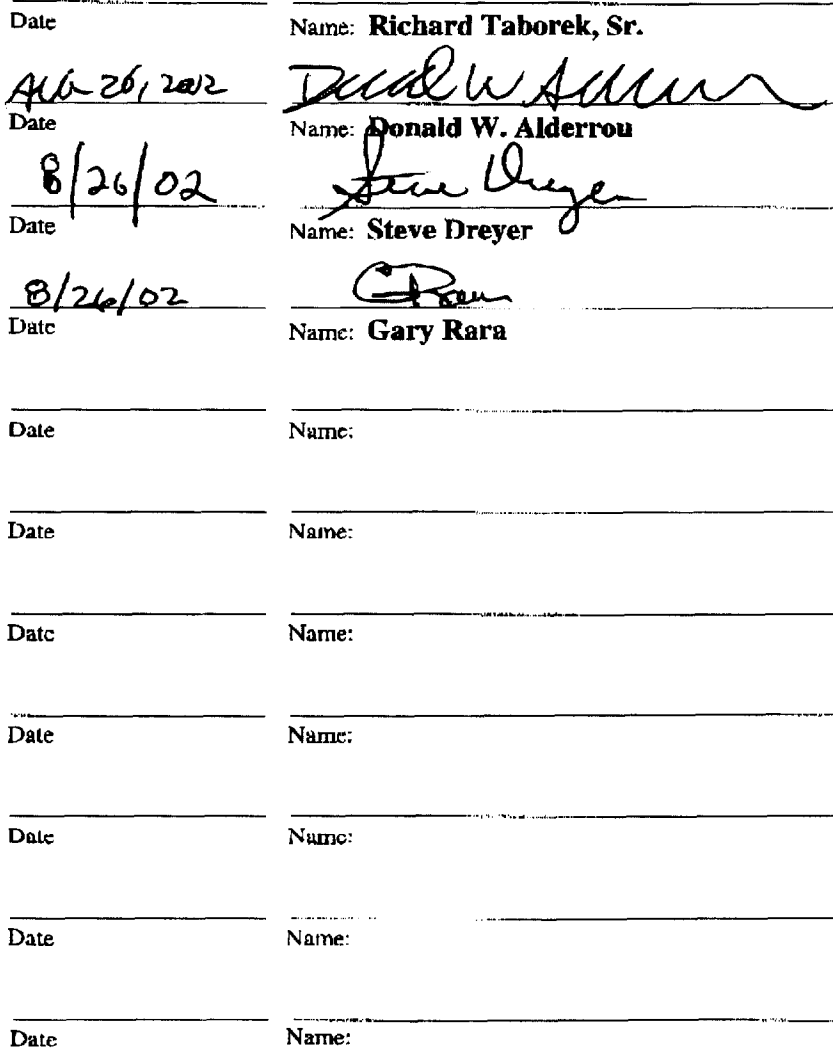 Date Name: Richard Taborek, Sr.
AUG 26, 2002 Donald W Alderrou
Date Name: Donald W. Alderrou
8/26/02 Steve Dreyer
Date Name: Steve Dreyer
8/26/02
Date Name: Gary Rara
Date Name:
Date Name:
Date Name:
Date Name:
Date Name:
Date Name:
Date Name: